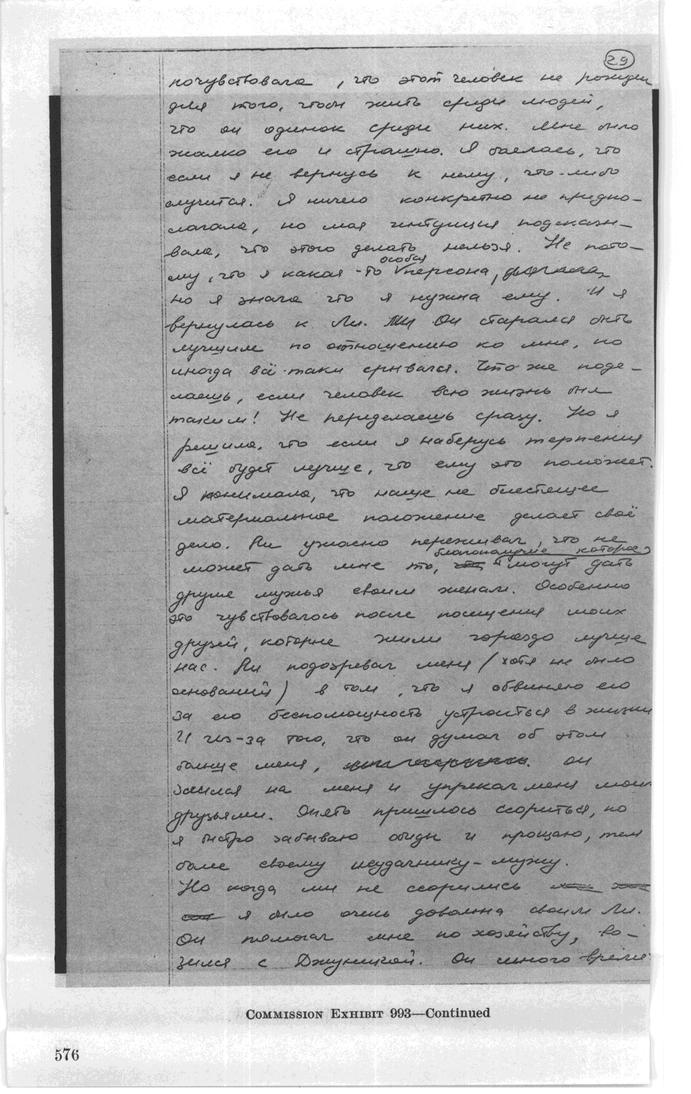 29
почувствовала, что этот человек не рожден
для того, чтобы жить среди людей,
что он одинок среди них. Мне было
жалко его и страшно. Я боялась, что
если я не вернусь к нему, что-либо
случится. Я ничего конкретно не предпо-
лагала, но моя интуиция подсказы-
вала, что этого делать нельзя. Не пото-
му, что я какая-то особая персона,
но я знала что я нужна ему. И я
вернулась к Ли. Он старался быть
лучшим по отношению ко мне, но
иногда всё-таки срывался. Что же поде-
лаешь, если человек всю жизнь был
таким! Не переделаешь сразу. Но я
решила, что если я наберусь терпения
всё будет лучше, что ему это поможет.
Я понимала, что наше не блестящее
материальное положение делает своё
дело. Ли ужасно переживал, что не
может дать мне то, благополучие которое могут дать
другие мужья своим женам. Особенно
это чувствовалось после посещения моих
друзей, которые жили гораздо лучше
нас. Ли подозревал меня (хотя не было
оснований) в том, что я обвиняю его
за его беспомощность устроиться в жизни
И из-за того, что он думал об этом
больше меня, он
злился на меня и упрекал меня моими
друзьями. Опять пришлось ссориться, но
я быстро забываю обиды и прощаю, тем
более своему неудачнику-мужу.
Но когда мы не ссорились
я было очень довольна своим Ли.
Он помогал мне по хозяйству, во-
зился с Джуникой. Он много время
COMMISSION EXHIBIT 993—Continued
576